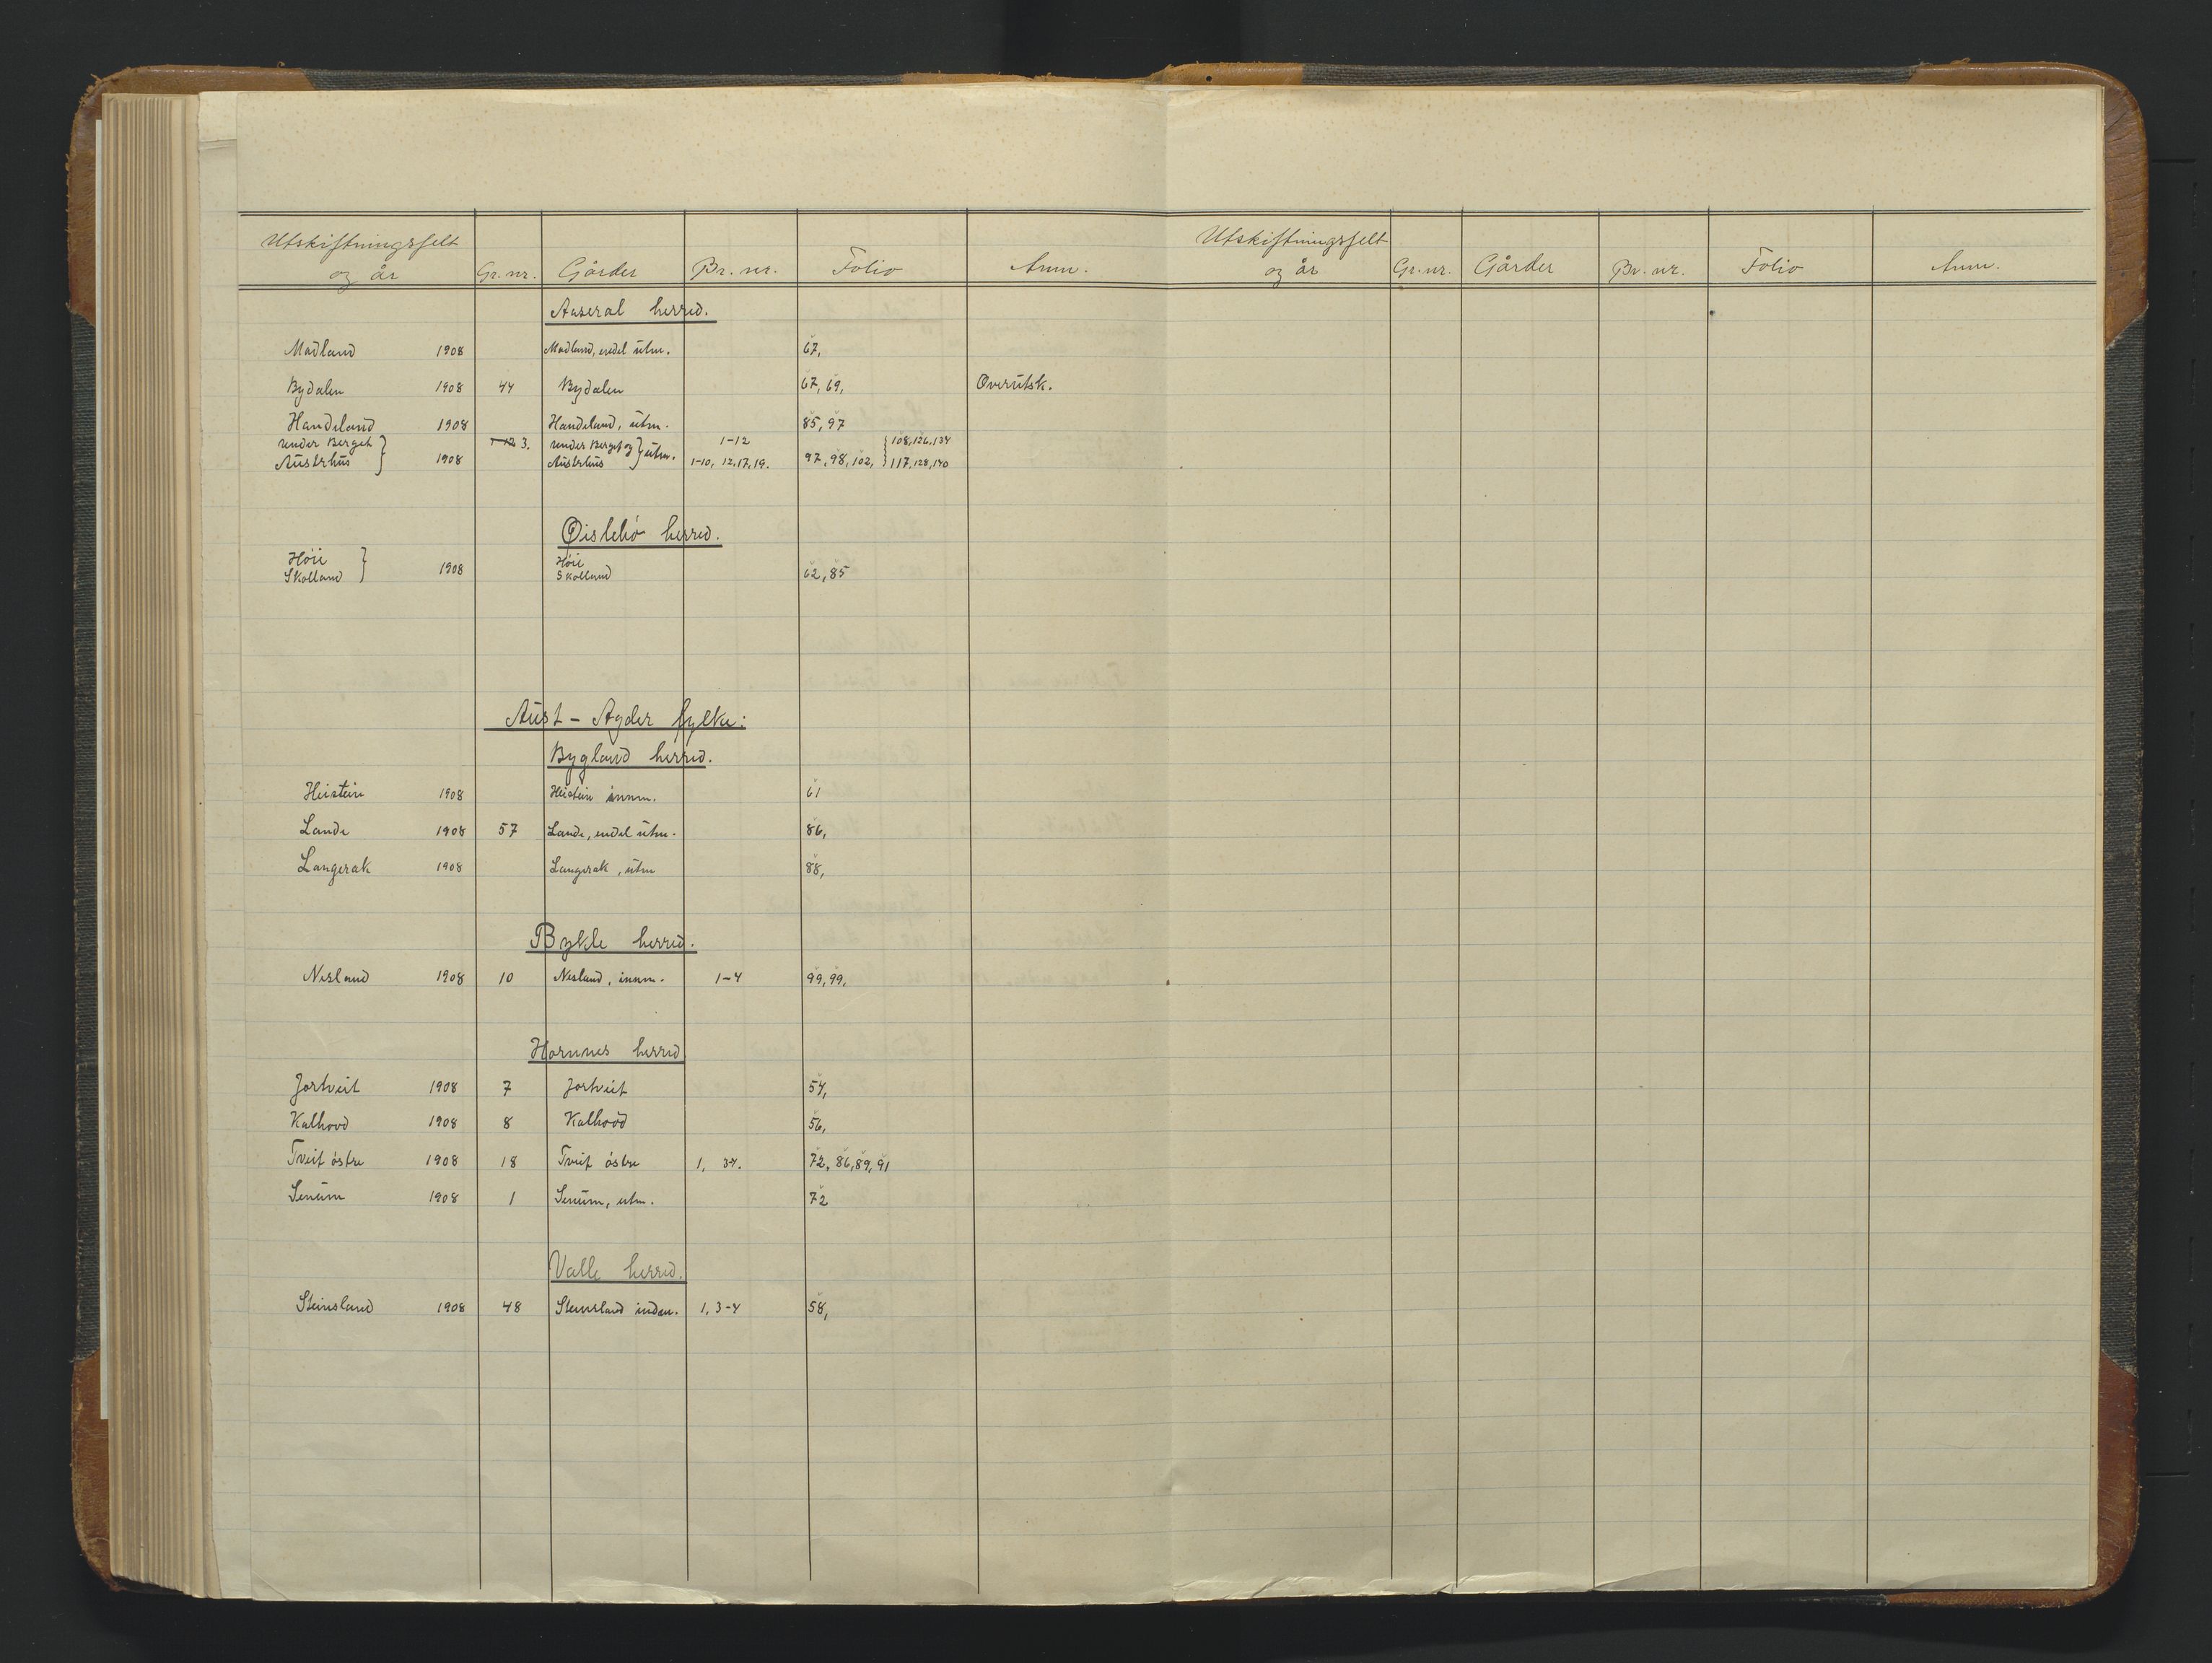 Utskiftningsfelt
og år Gr. nr. Gårder Br. nr. Folio Anm.
Aaseral herred.
Madland 1908 Madland, endel utm. 67,
Bydalen 1908 44 Bydalen 67, 69, Overutsk.
Handeland 1908 Handeland, utm. 85, 97
under Berget } 3. under Berget og } utm. 1-12 { 108, 126, 134
Austrhus } 1908 Austrhus 1-10, 12, 17, 19. 97, 98, 102, { 117, 128, 140
Øislebö herred.
Höie } Höie
Skolland } 1908 Skolland 62, 85
Aust - Agder fylke:
Bygland herred.
Heistein 1908 Heistein innm. 61
Lande 1908 57 Lande, endel utm. 86,
Langerak 1908 Langerak, utm 88,
Bykle herred.
Nesland 1908 10 Nesland, innm. 1-4 99, 99,
Hornnes herred
Jortveit 1908 7 Jortveit 54,
Kalhovd 1908 8 Kalhovd 56,
Tveit östre 1908 18 Tveit östre 1, 34. 72, 86, 89, 91
Senum 1908 1 Senum, utm. 72
Valle herred.
Steinsland 1908 48 Steinsland indm. 1, 3-4 58,
Utskiftningsfelt
og år Gr. nr. Gårder Br. nr. Folio Anm.